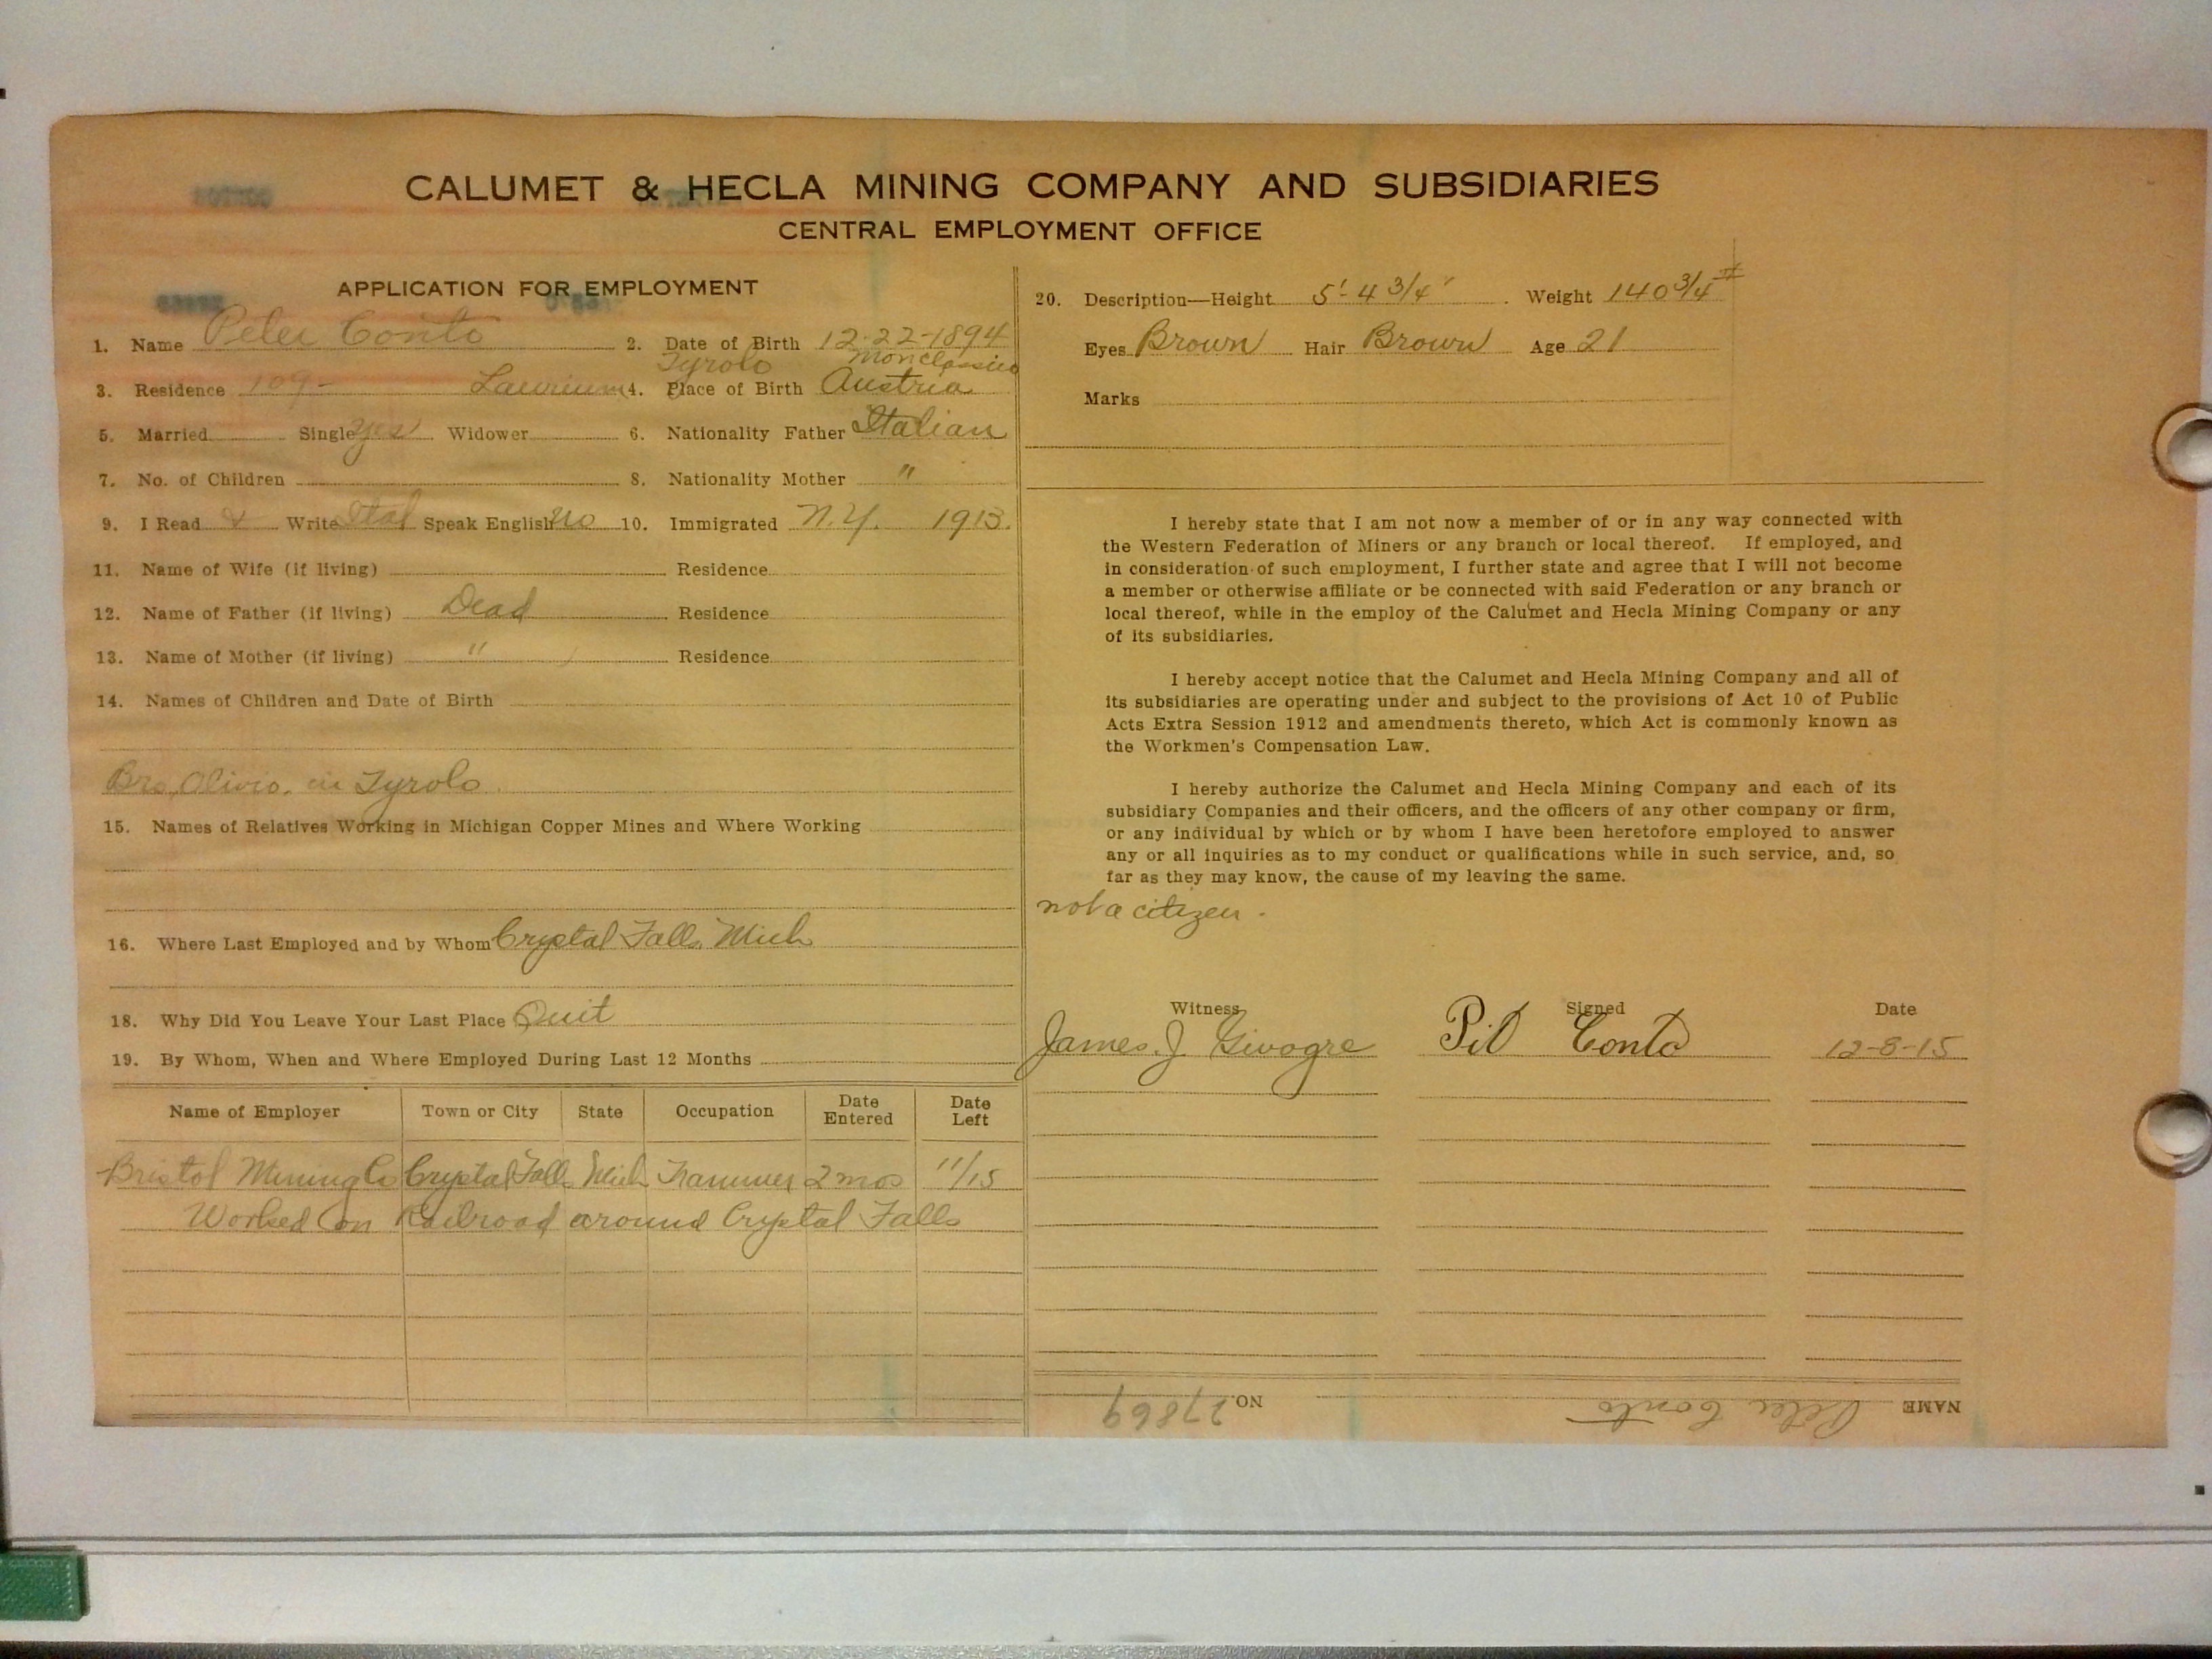 CALUMET & HECLA MINING COMPANY AND SUBSIDIARIES
CENTRAL EMPLOYMENT OFFICE
APPLICATION FOR EMPLOYMENT
1. Name Peter Conto 2. Date of Birth 12-22-1894
Tyrolo Monclassico
3. Residence 109- Laurium 4. Place of Birth Austria
5. Married Single yes Widower 6. Nationality Father Italian
7. No. of Children 8. Nationality Mother "
9. I Read & Write Ital Speak English no 10. Immigrated N.Y. 1913.
11. Name of Wife (if living) Residence
12. Name of Father (if living) Dead Residence
13. Name of Mother (if living) " Residence
14. Names of Children and Date of Birth
Bro, Olivio, in Tyrolo
15. Names of Relatives Working in Michigan Copper Mines and Where Working
16. Where Last Employed and by Whom Crystal Falls Mich
18. Why Did You Leave Your Last Place Quit
19. By Whom, When and Where Employed During Last 12 Months
Name of Employer Town or City State Occupation Date Entered Date Left
Bristol Mining Co Crystal Falls Mich Trammer 2 mos 11/15
Worked on Railroad around Crystal Falls
20. Description—Height 5'-4 3/4" Weight 140 3/4 #
Eyes Brown Hair Brown Age 21
Marks
I hereby state that I am not now a member of or in any way connected with
the Western Federation of Miners or any branch or local thereof. If employed, and
in consideration of such employment, I further state and agree that I will not become
a member or otherwise affiliate or be connected with said Federation or any branch or
local thereof, while in the employ of the Calumet and Hecla Mining Company or any
of its subsidiaries.
I hereby accept notice that the Calumet and Hecla Mining Company and all of
its subsidiaries are operating under and subject to the provisions of Act 10 of Public
Acts Extra Session 1912 and amendments thereto, which Act is commonly known as
the Workmen's Compensation Law.
I hereby authorize the Calumet and Hecla Mining Company and each of its
subsidiary Companies and their officers, and the officers of any other company or firm,
or any individual by which or by whom I have been heretofore employed to answer
any or all inquiries as to my conduct or qualifications while in such service, and, so
far as they may know, the cause of my leaving the same.
not a citizen.
Witness Signed Date
James J. Givogre Pit Conto 12-8-15
NAME Peter Conto NO. 27869